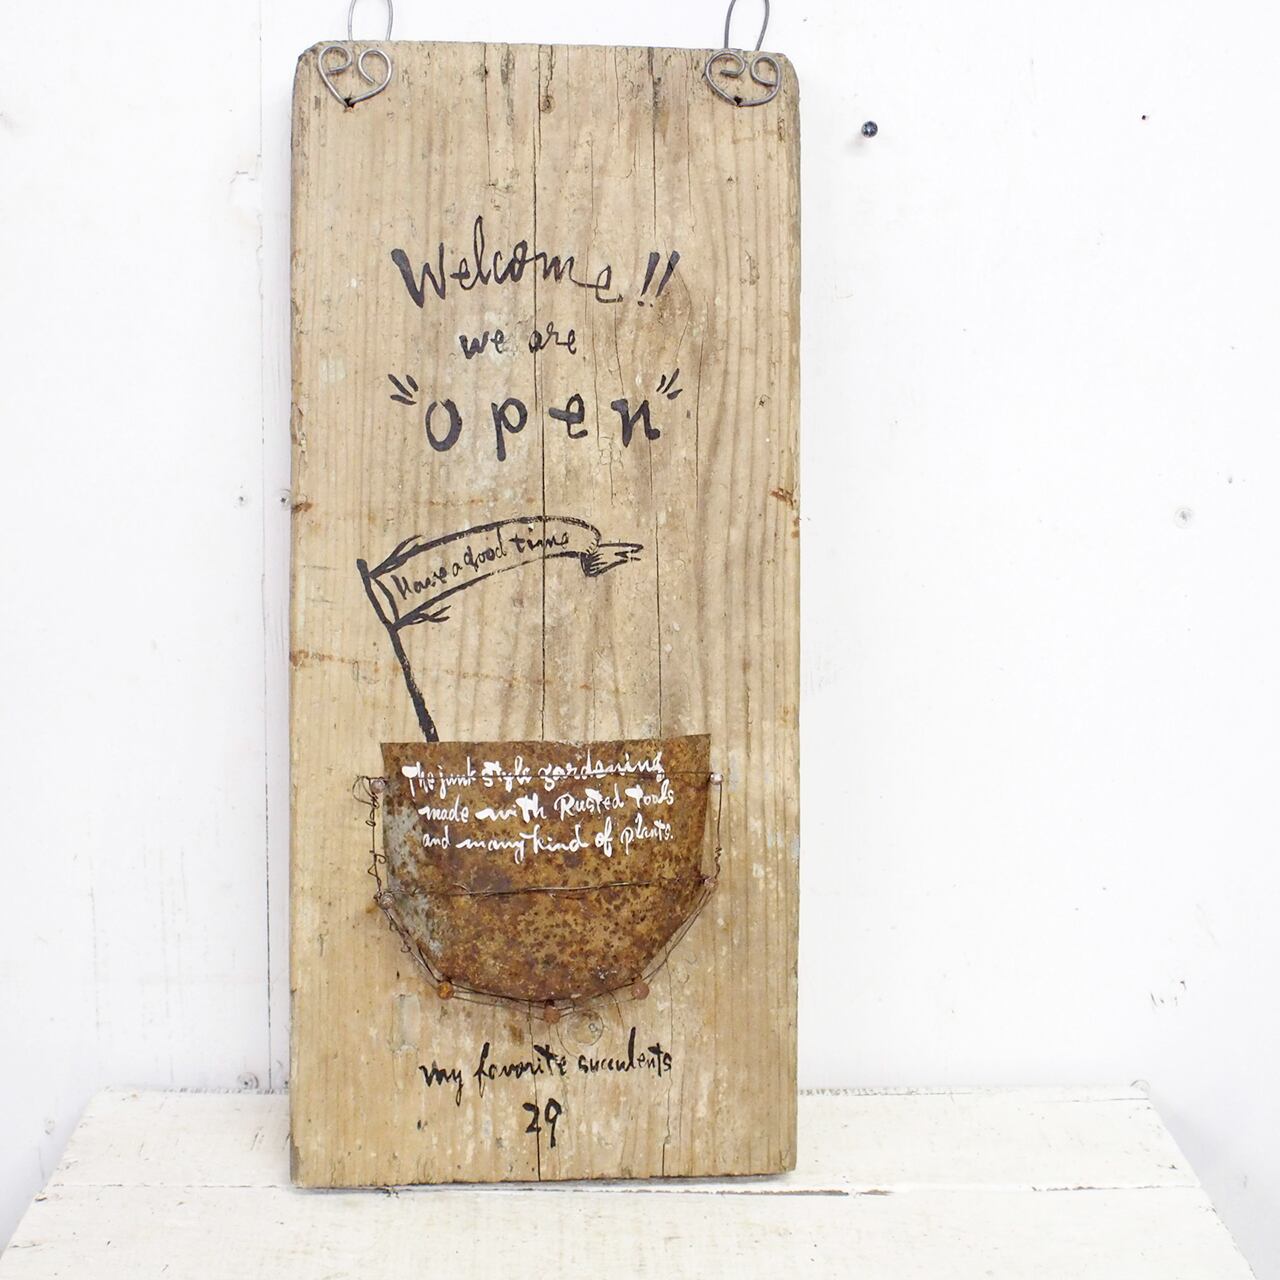 Welcome!!
we are
"open"
Have a good time
The junk style gardening
made with Rusted Tools
and many kind of plants.
my favorite succulents
29